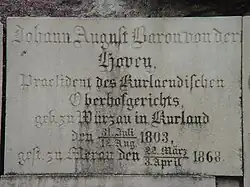 Johann August Baron von der
Hoven,
Praesident des Kurlaendischen
Oberhofgerichts,
geb. zu Würzau in Kurland
den 31. Juli / 12. Aug. 1803,
gest. zu Meran den 22. März / 3. April 1868.